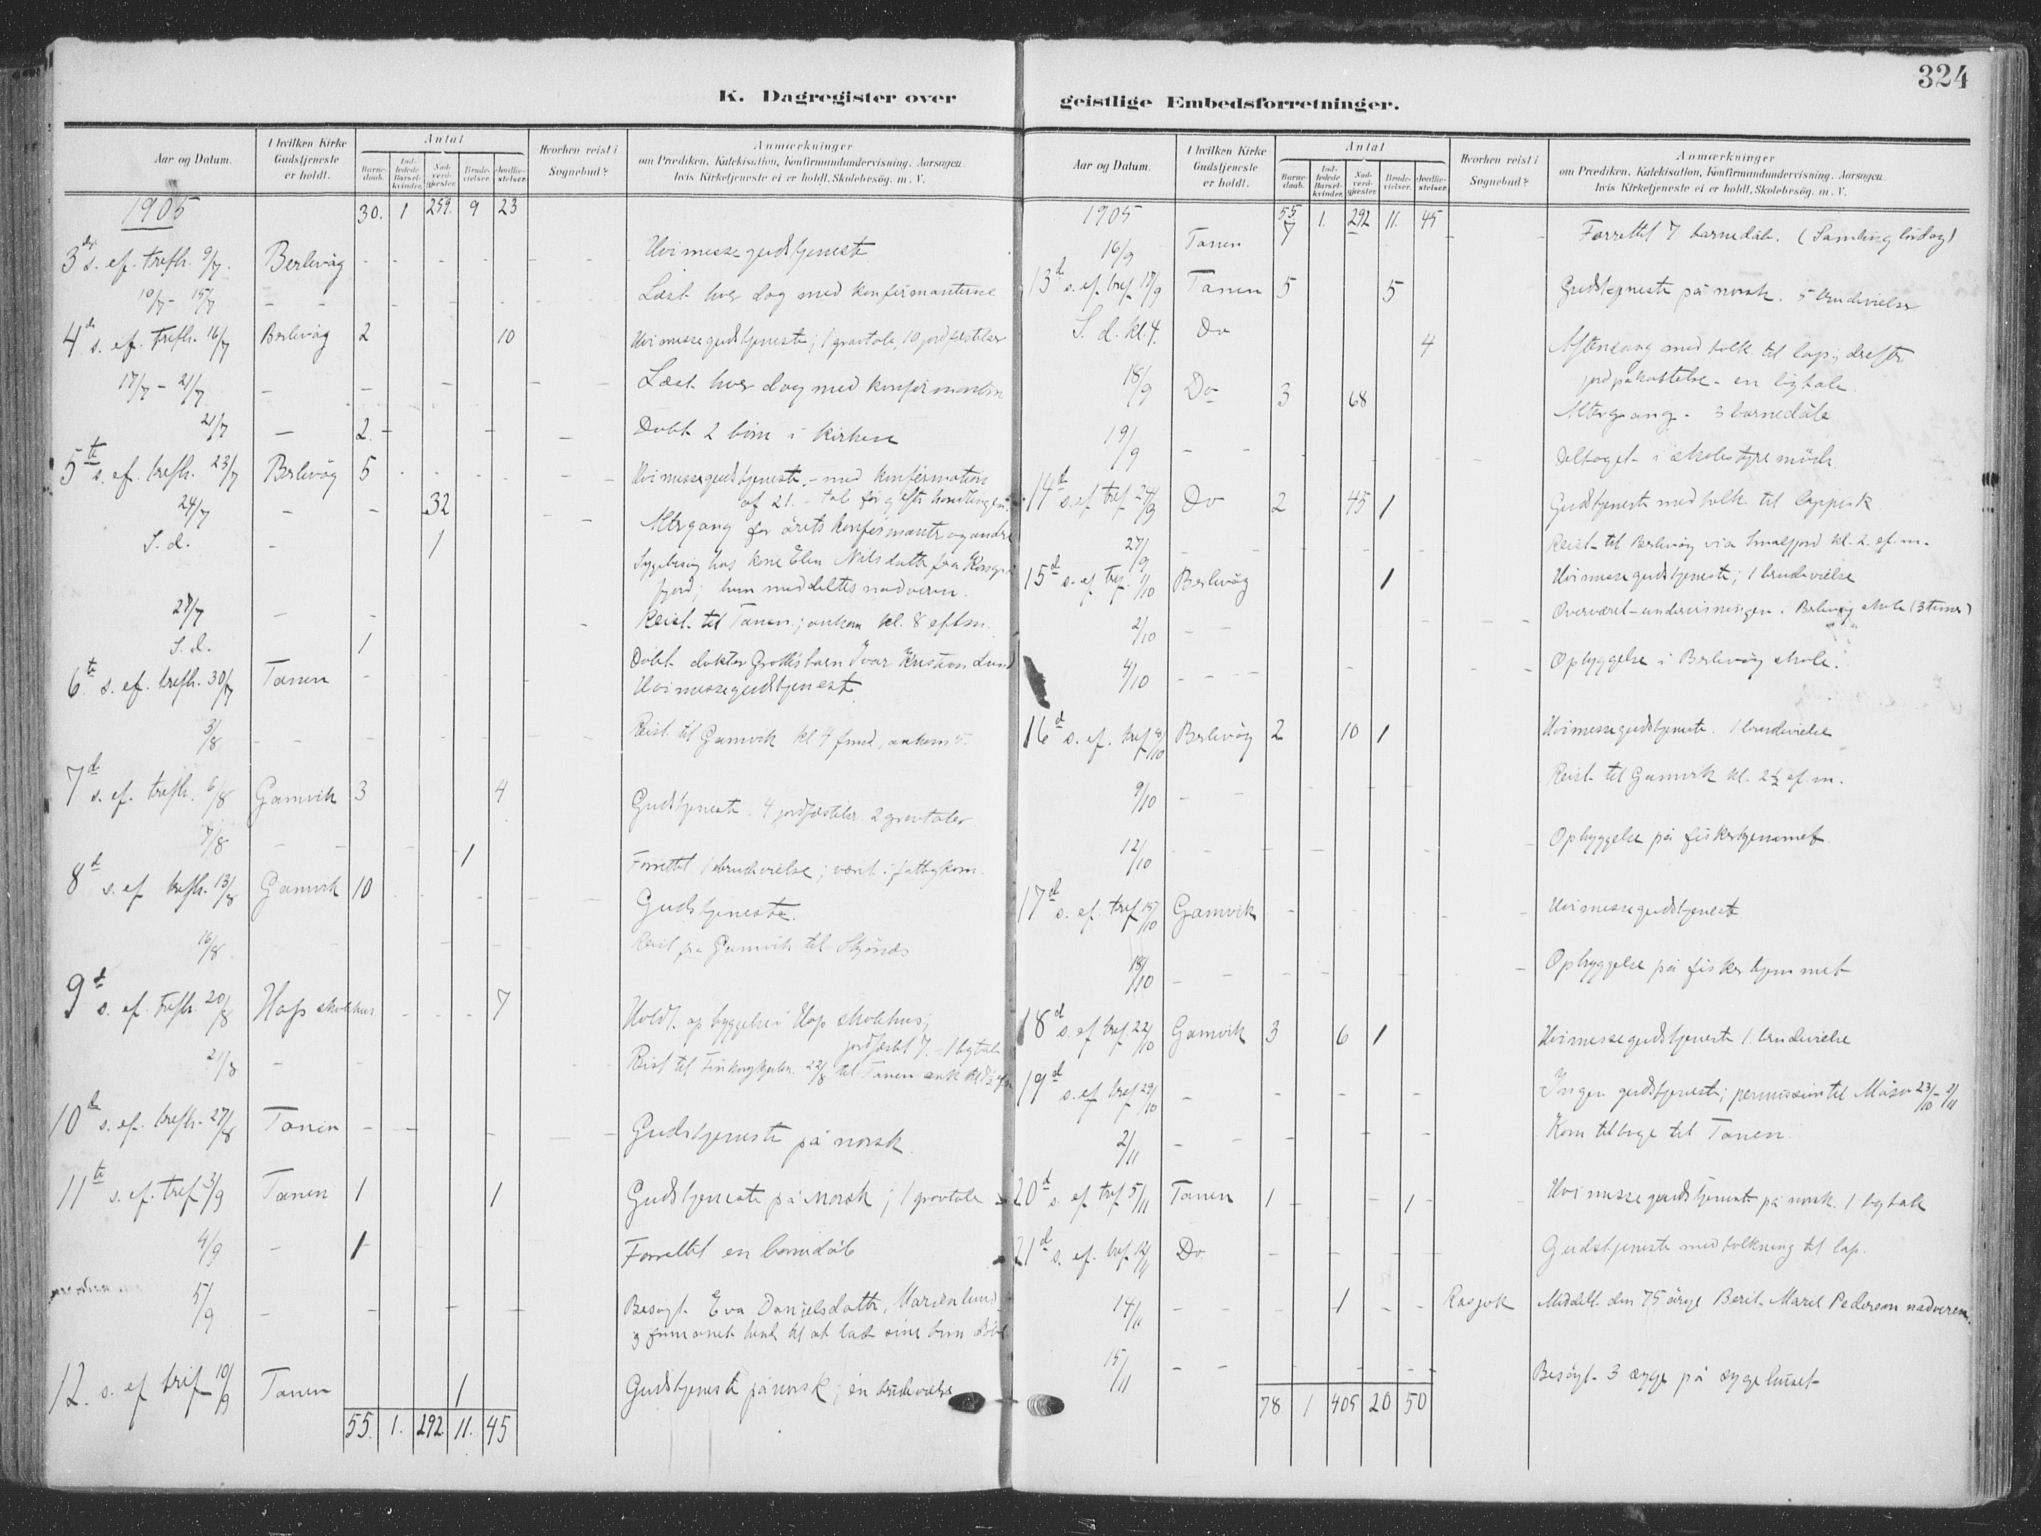 324
K. Dagregister over geistlige Embedsforretninger.
Aar og Datum.
I hvilken Kirke Gudstjeneste er holdt.
Antal
Barnedaab.
Indledede Barselkvinder.
Nadverdgjester.
Brudevielser.
Jordfæstelser.
Hvorhen reist i Sognebud?
Anmærkninger
om Prædiken, Katekisation, Konfirmandundervisning. Aarsagen,
hvis Kirketjeneste ei er holdt. Skolebesög. m. V.
1905 30. 1 259. 9 23
3die s. ef. trefh. 9/7. Berlevåg - - - - - Uvimessegudstjeneste
10/7 - 15/7 - - Læst hver dag med konfirmanterne
4de s. ef. trefh. 16/7 Berlevåg 2 10 Uvimessegudstjeneste; 1 gravtale 10 jordfæstelser
17/7 - 21/7 - - - - - Læst hver dag med konfirmanterne
21/7 - 2. - - - Döbt 2 börn i kirken
5te s. ef. trefh. 23/7 Berlevåg 5 - - - - Uvimessegudstjeneste, - med konfirmation
af 21. - tale før og efter handlingen.
24/7 - - 32 - - Altergang for årets konfirmanter og andre
S. d. - 1 Sygebesøg hos kone Elen Nilsdatter fra Kongs-
fjord; hun meddeltes nadveren.
27/7 - - - Reist til Tanen; ankom kl. 8 eftm.
S. d. 1 Döbt doktor Grøttes barn Ivar Kristian Lund
6te s. ef. trefh. 30/7 Tanen - - - - - Uvimessegudstjeneste
3/8 - - - - Reist til Gamvik kl 4 fmd, ankom 5.
7de s. ef. trefh. 6/8 Gamvik 3 4 Gudstjeneste. 4 jordfæstelser 2 gravtaler
7/8 - - - - 1 Forrettet 1 brudevielse; været i fattigkom.
8de s. ef. trefh. 13/8 Gamvik 10 Gudstjeneste.
16/8. - - - Reist fra Gamvik til Skjånæs
9de s. ef. trefh. 20/8 Hops skolehus - - - 7 Holdt opbyggelse i Hop skolehus;
jordfæstet 7. - 1 ligtale
21/8 - Reist til 22/8 til Tanen
10de s. ef. trefh. 27/8 Tanen - - - Gudstjeneste på norsk.
11te s. ef. tref 3/9 Tanen 1 1 Gudstjeneste på norsk; 1 gravtale
4/9 - 1 Forrettet en barnedåb
5/9 - - - - Besøgt Eva Danielsdatter, Marienlund
12. s. ef tref 10/9 Tanen 1 Gudstjeneste på norsk; én brudevielse
55. 1. 292 11. 45
Aar og Datum.
I hvilken Kirke Gudstjeneste er holdt.
Antal
Barnedaab.
Indledede Barselkvinder.
Nadverdgjester.
Brudevielser.
Jordfæstelser.
Hvorhen reist i Sognebud?
Anmærkninger
om Prædiken, Katekisation, Konfirmandundervisning. Aarsagen,
hvis Kirketjeneste ei er holdt. Skolebesög. m. V.
1905 55 1. 292 11. 45
16/9 Tanen 7 Forrettet 7 barnedåb. (Samling lördag)
13de s. ef. tref 17/9 Tanen 5 5 Gudstjeneste på norsk. 5 brudevielser
S. d. kl. 4. Do 4 Aftensang med tolk til lap; derefter
jordpåkastelse - en ligtale.
18/9 Do 3 68 Altergang - 3 barnedåb
19/9 - - - - - Deltaget i skolestyremöde.
14de s. ef tref 24/9 Do 2 45 1 Gudstjeneste med tolk til lappisk
27/9 - - - - Reist til Berlevåg via Smalfjord kl. 2. ef. m.
15de s. ef. tref. 1/10 Berlevåg 1 Uvimessegudstjeneste; 1 brudevielse
2/10 - - Overværet undervisningen i Berlevåg skole (3 timer)
4/10 - - - - Opbyggelse i Berlevåg skole.
16de s. ef. tref 8/10 Berlevåg 2 10 1 Uvimessegudstjeneste. 1 brudevielse
9/10 - - Reist til Gamvik kl. 2½ ef. m.
12/10 - - - - Opbyggelse på fiskerhjemmet
17de s. ef. tref 15/10 Gamvik - - - - Uvimessegudstjeneste
18/10 - - - - Opbyggelse på fiskerhjemmet
18de s. ef tref 22/10 Gamvik 3 6 1 Uvimessegudstjeneste 1. brudevielse
19de s. ef tref 29/10 - - - - - Ingen gudstjeneste; permission til Måsø 23/10 - 2/11
2/11 - - - - - Kom tilbage til Tanen.
20de s. ef tref 5/11 Tanen 1 - - - 1 Uvimessegudstjeneste på norsk. 1 ligtale
21de s. ef. tref 12/11 Do. - - - - - Gudstjeneste med tolkning til lap.
14/11 - - 1 - - Rasjok Meddelt den 75 årige Berit Marit Pedersen nadveren.
15/11 - - - - Besøgt 3 syge på sygehuset
78. 1 405 20 50